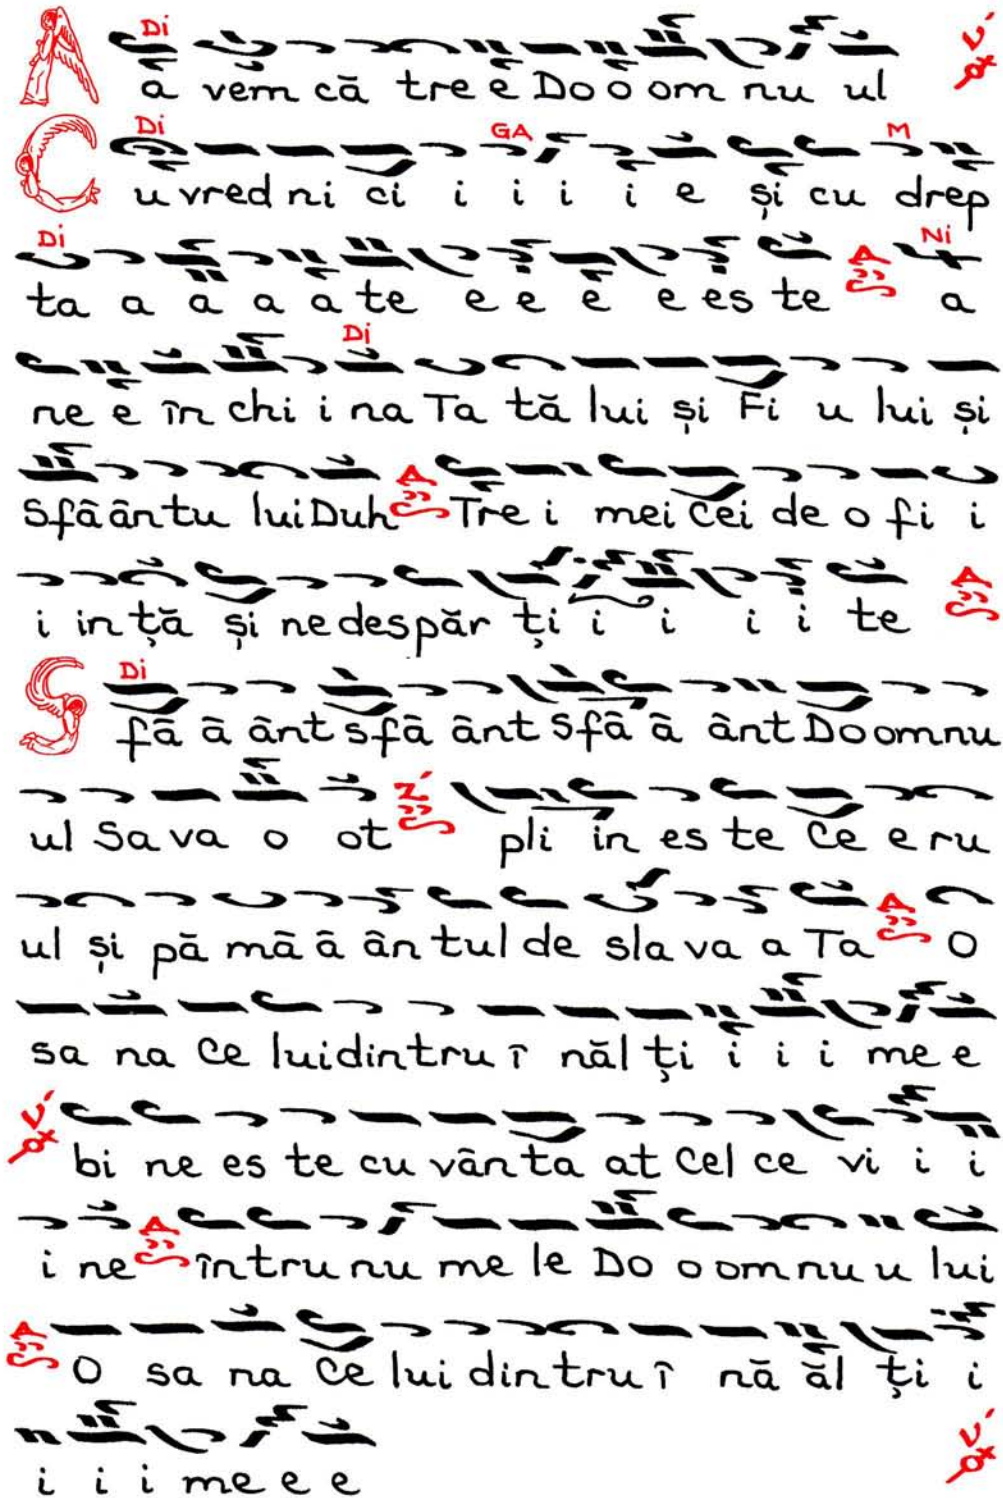 Di
A ă vem că tre e Do o om nu ul
Di GA M
C u vred ni ci i i i i e și cu drep
Di Ni
ta a a a a te e e e e es te a
Di
ne e în chi i na Ta tă lui și Fi u lui și
Sfâ ân tu lui Duh Tre i mei cei de o fi i
i in ță și ne des păr ți i i i i te
Di
S fâ â ânt sfâ ânt Sfâ â ânt Do om nu
ul Sa va o ot pli in es te Ce e ru
ul și pă mâ â ân tul de sla va a Ta O
sa na Ce lui din tru î năl ți i i i me e
bi ne es te cu vân ta at Cel ce vi i i
i ne în tru nu me le Do o om nu u lui
O sa na Ce lui din tru î nă ăl ți i
i i i me e e